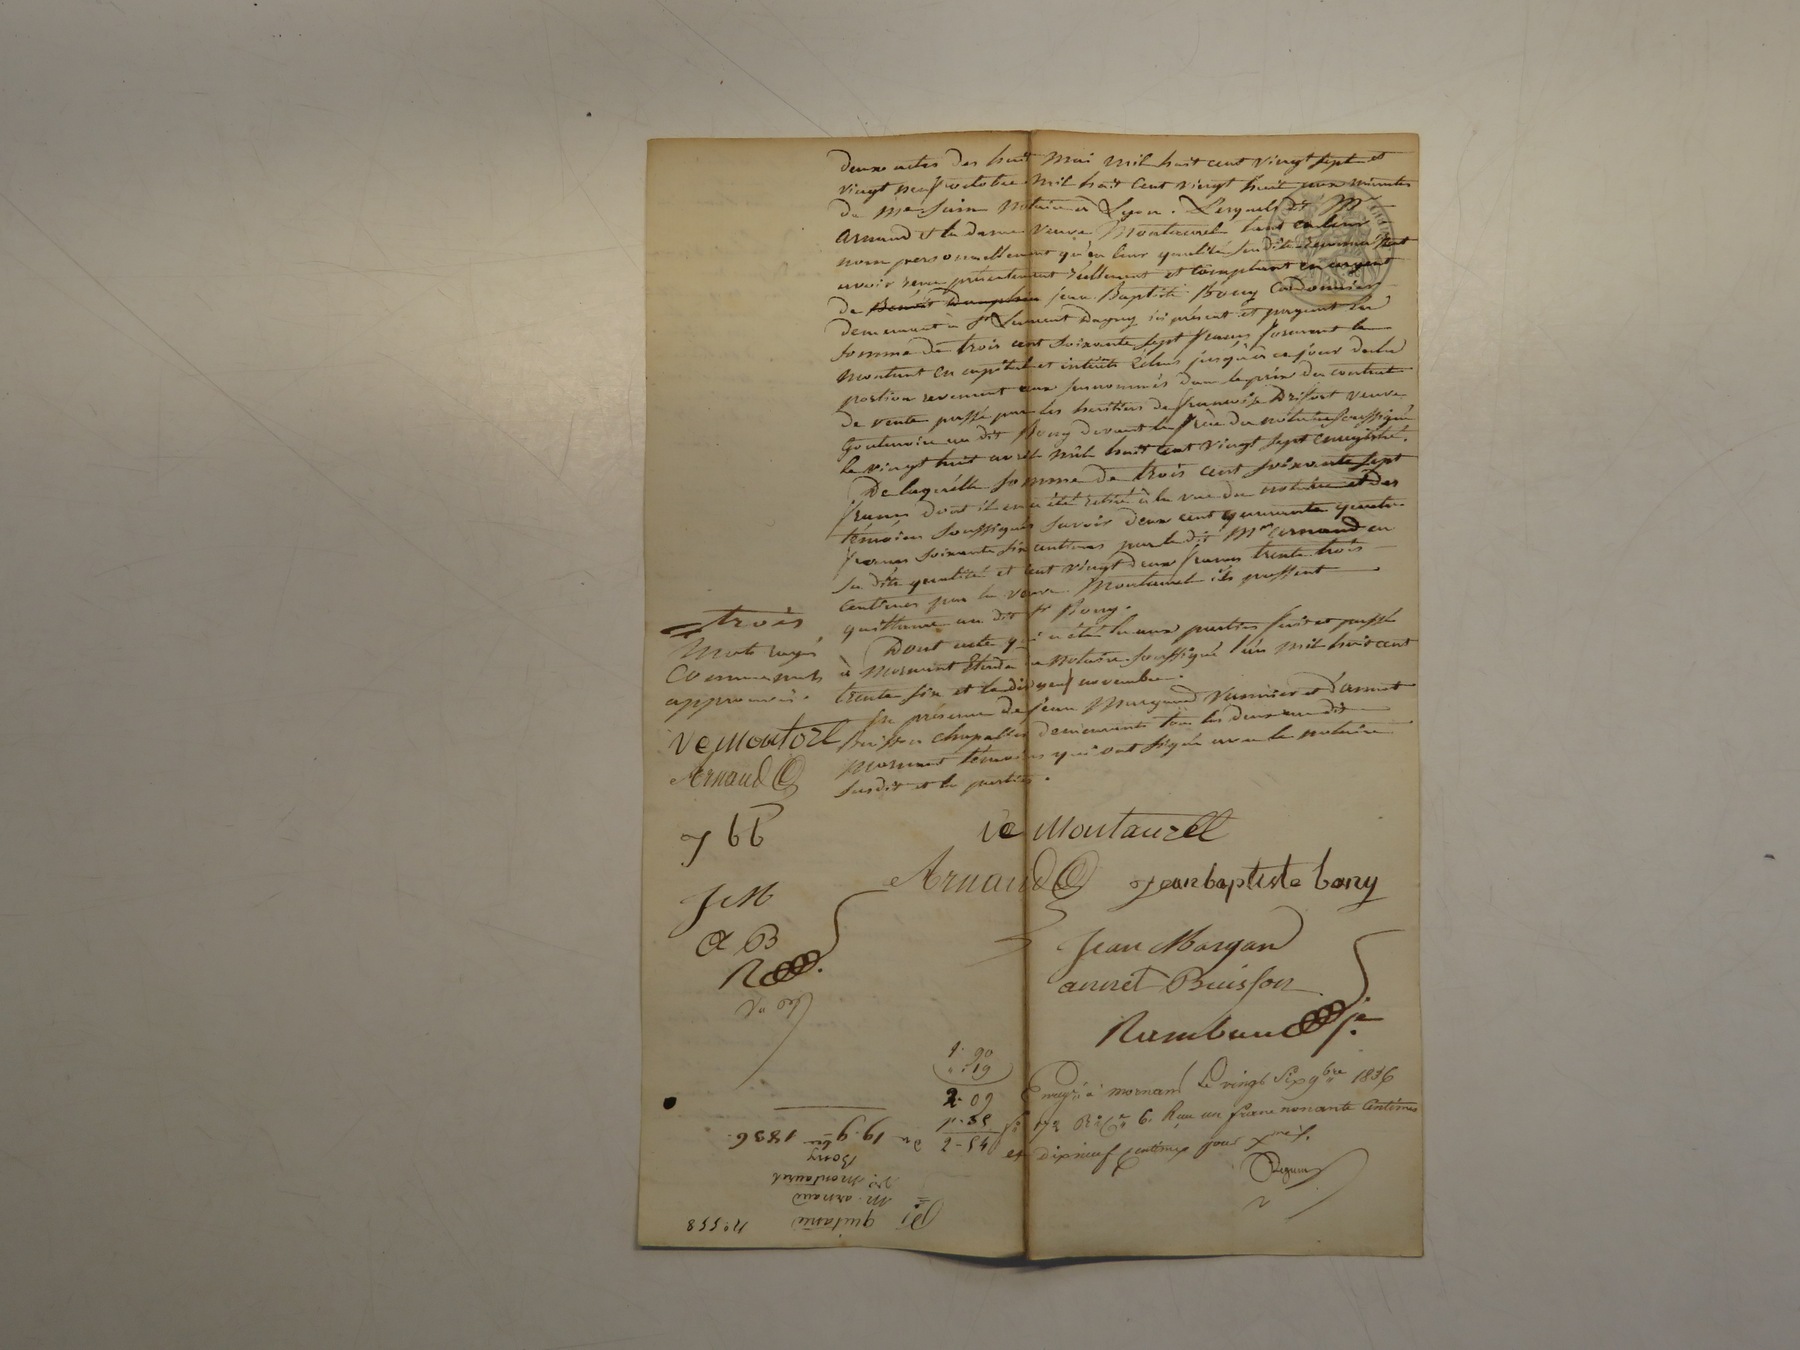 deux actes des huit Mai mil huit cent vingt sept et
vingt neuf octobre mil huit cent vingt huit aux minutes
de Me notaire a Lyon. Lesquels dt Mr
Arnaud et la dame veuve Montaurel tant en leur
nom personnellement qu'en leur qualité sus dite reconnaissent
avoir reçu présentement réellement et comptant en argent
de Benoit Dauphin jean Baptiste Bony Cordonnier
demeurant à St Laurent Dagny ici présent et payant la
somme de trois cent soixante sept francs formant le
montant en capital et intérêts échus jusqu'à ce jour de la
portion revenant aux susnommés dans le prix du contrat
de vente passé par les héritiers de françoise veuve
au dit Bony devant le père du notaire soussigné
le vingt huit avril mil huit cent vingt sept enregistré.
De laquelle somme de trois cent soixante sept
francs dont il en a été retiré à la vue du notaire et des
témoins soussignés savoir deux cent quarante quatre
francs soixante six centimes par le dit Mr Arnaud en
sa dite qualité et cent vingt deux francs trente trois
centimes par la veuve Montaurel ils passent
quittance au dit Sr Bony.
Dont acte qui a été lu aux parties fait et passé
à Mornant Etude du notaire soussigné l'an mil huit cent
trente six et le dix neuf novembre.
En présence de jean Margand et d'annet
Buisson chapellier demeurants tous les deux au dit
Mornant témoins qui ont signé avec le notaire
susdit et les parties.
trois
mots rayés
Comme nuls
approuvés.
Ve Montorl
Arnaud
J b b
J M
a B
R
ve Montaurel
Arnaud
jean baptiste bony
Jean Margan
annet Buisson
Rambaud je
1. 90
". 19
2. 09
Enregtré à mornant le vingt Six 9bre 1836
fo 172 Ro Ce 6. Reçu un franc nonante Centimes
et dix neuf centimes pour Xmes.
Du 19. 9bre 1836.
Bony
Ve. montaurel
M. arnaud
quitance
No 558